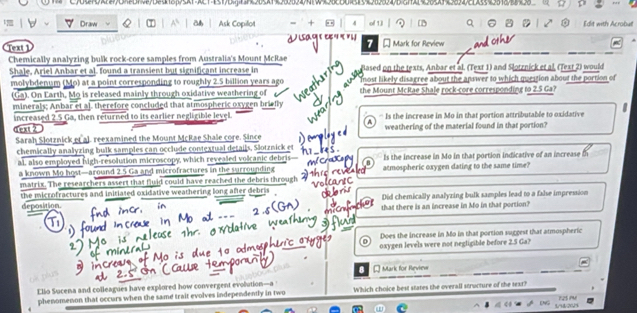 Draw
Ask Copilot
4 of 13
Edit with Acrobat
Text 1
Chemically analyzing bulk rock-core samples from Australia's Mount McRae
Shale, Ariel Anbar et al. found a transient but significant increase in
molybdenum (Mo) at a point corresponding to roughly 2.5 billion years ago
(Ga). On Earth, Mo is released mainly through oxidative weathering of
minerals; Anbar et al. therefore concluded that atmospheric oxygen briefly
increased 2.5 Ga, then returned to its earlier negligible level.
Text 2
Sarah Slotznick et al. reexamined the Mount McRae Shale core. Since
chemically analyzing bulk samples can occlude contextual details, Slotznick et
al. also employed high-resolution microscopy, which revealed volcanic debris—
a known Mo host—around 2.5 Ga and microfractures in the surrounding
matrix. The researchers assert that fluid could have reached the debris through
the microfractures and initiated oxidative weathering long after debris
deposition.
T1
find incr. in
1) found increase in Mo at --- 2.5 (GA)
2) Mo is release thr. oxidative weathering
of mineral
3) increase of Mo is due to admospheric oxyges
at 2.5 Gn (cause temporarily)
Weathering
Wearing away
1) employed
hi-res.
microscopy
2) this revealed
volcanic
debris
microfractures
3) fluid
Elio Sucena and colleagues have explored how convergent evolution—a
phenomenon that occurs when the same trait evolves independently in two
and other
7 Mark for Review
Based on the texts, Anbar et al. (Text 1) and Slotznick et al. (Text 2) would
most likely disagree about the answer to which question about the portion of
the Mount McRae Shale rock-core corresponding to 2.5 Ga?
A Is the increase in Mo in that portion attributable to oxidative
weathering of the material found in that portion?
B Is the increase in Mo in that portion indicative of an increase in
atmospheric oxygen dating to the same time?
Did chemically analyzing bulk samples lead to a false impression
that there is an increase in Mo in that portion?
D Does the increase in Mo in that portion suggest that atmospheric
oxygen levels were not negligible before 2.5 Ga?
8 Mark for Review
Which choice best states the overall structure of the text?
ENG
7:25 PM